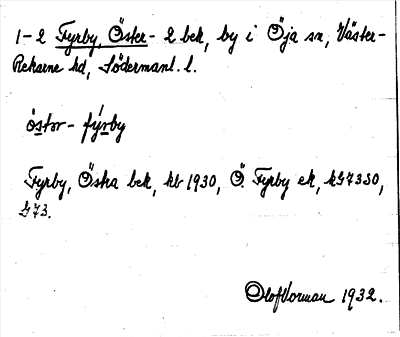 1-2 Fyrby, Öster- 2 bek, by i Öja sn, Väster-
Rekarne hd, Södermanl. l.
östər- fýrby
Fyrby, Östra bek, kb 1930, Ö. Fyrby ek, kG73SO,
G73.
Olof Vorman 1932.